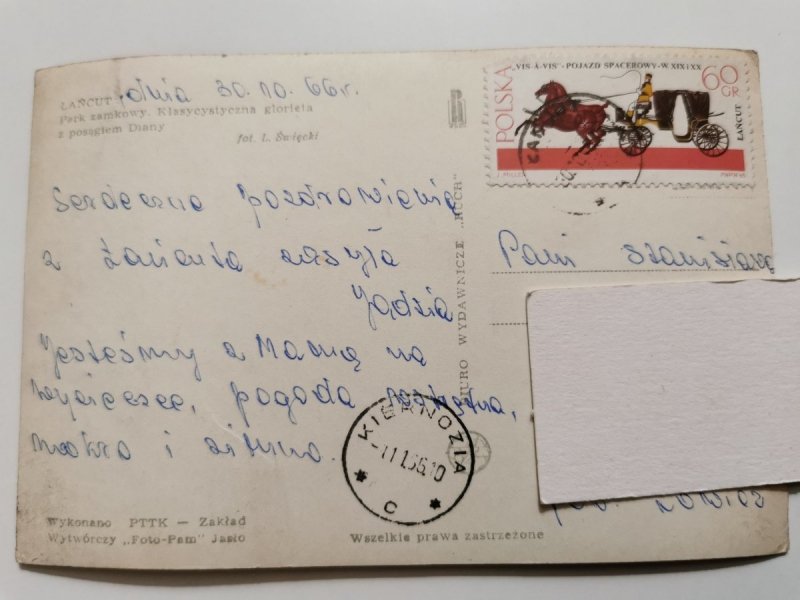 ŁAŃCUT
dnia 30.10.66r.
Park zamkowy. Klasycystyczna glorieta
z posągiem Diany
fot. L. Święcki
Serdeczne pozdrowienia
z Łańcuta zasyła
Jadzia
Jesteśmy z Mamą na
wycieczce, pogoda
mokro i zimno.
Wykonano PTTK — Zakład
Wytwórczy „Foto-Pam" Jasło
Wszelkie prawa zastrzeżone
BIURO WYDAWNICZE „RUCH"
„VIS-À-VIS" - POJAZD SPACEROWY - W. XIX i XX
POLSKA
60 GR
ŁAŃCUT
KIERNOZIA
C
Pani Stanisława
Łowicz